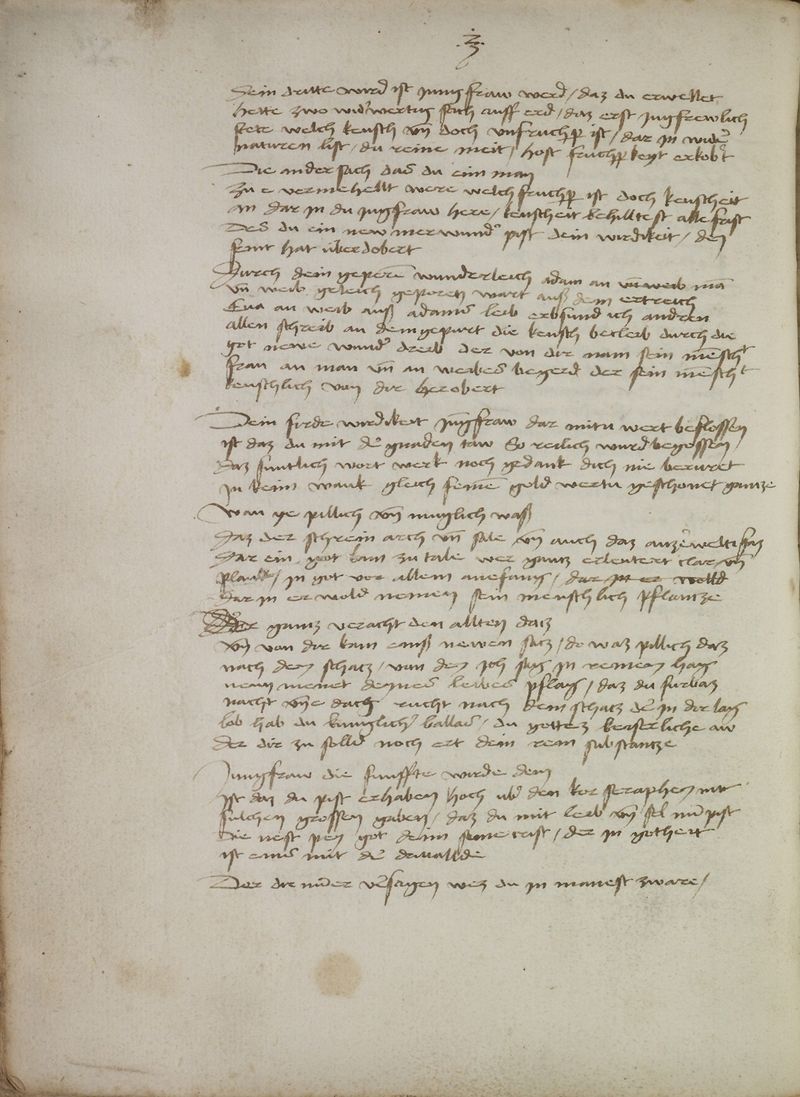 .3.
Dein dritte wird ist iung fraw werd / daz du erwellet
hette zwo widerwertig sach auff erd / daz erst jugfrewlich
stete welch keusch vn doch vnfruchper ist / dar in wider
naturen list / du reine meit / host fruchperkeyt erkobert
Die ander sach das du eim man
zu e vermehellt were welch fruchper ist doch keuscheit
an dar in du jugfraw here / keuscheit behilltest alle frist
Des du ein new mer wunder pist dein wirdikeit / den
sent hat überdobert
Durch dein geperen wunderleich adam an vn weib man
vn weib geleich geporen wart auß dem ertreich
Eua an weib auß adams leib erbsund ich andren
allen schreib an dem gepurt die keusch becleib durch die
got newe wunder dreib der von dir nam sein menscht
frau an man vn an weibes begerd der sein menscht
keuschlich von dir herobert
Dein firde wirdikeit jungfraw dar mitu wert beslossen
ist daz du mit der gnaden taw So reilich wurd begossen /
daz suntlich wort werk noch gedank dich nie beruret
in keim wank gleich feinem gold wertu geschonet gantze
Wan ye pillich vn muglich waß
daz der schrein arch vn sale vn auch daz außerwelt faz
dar ein got kam zu tale wer gantz erleutert clar vn
/ in got vor allem anefang / dar
dar in er wold nemen sein menschlich pflantze
gantz veracht den allten satz
vn von dir kam einß newen satz / do waz pillich daz
nach dem schatz / von dem ich sag in reinem hag
nem deynes leibes pflag / daz du furbaz
nacht vne dach rucht nach dem schatz der in dir lag
lob hab du kuniglicher ballas / du gottes keiserliche aw
der dir zu solld noch ert dein rein substantze
Jungfraw die funffte wirde dein
ist daz du pist erhaben hoch uber den kor seraphein mit
sulchen grossen gaben / daz du mit leib vn sel nu pist
die nest pey got deim sune crist / der in gotheit
ist eins mit der
Der dir nimer versagen wez du in manest zware /